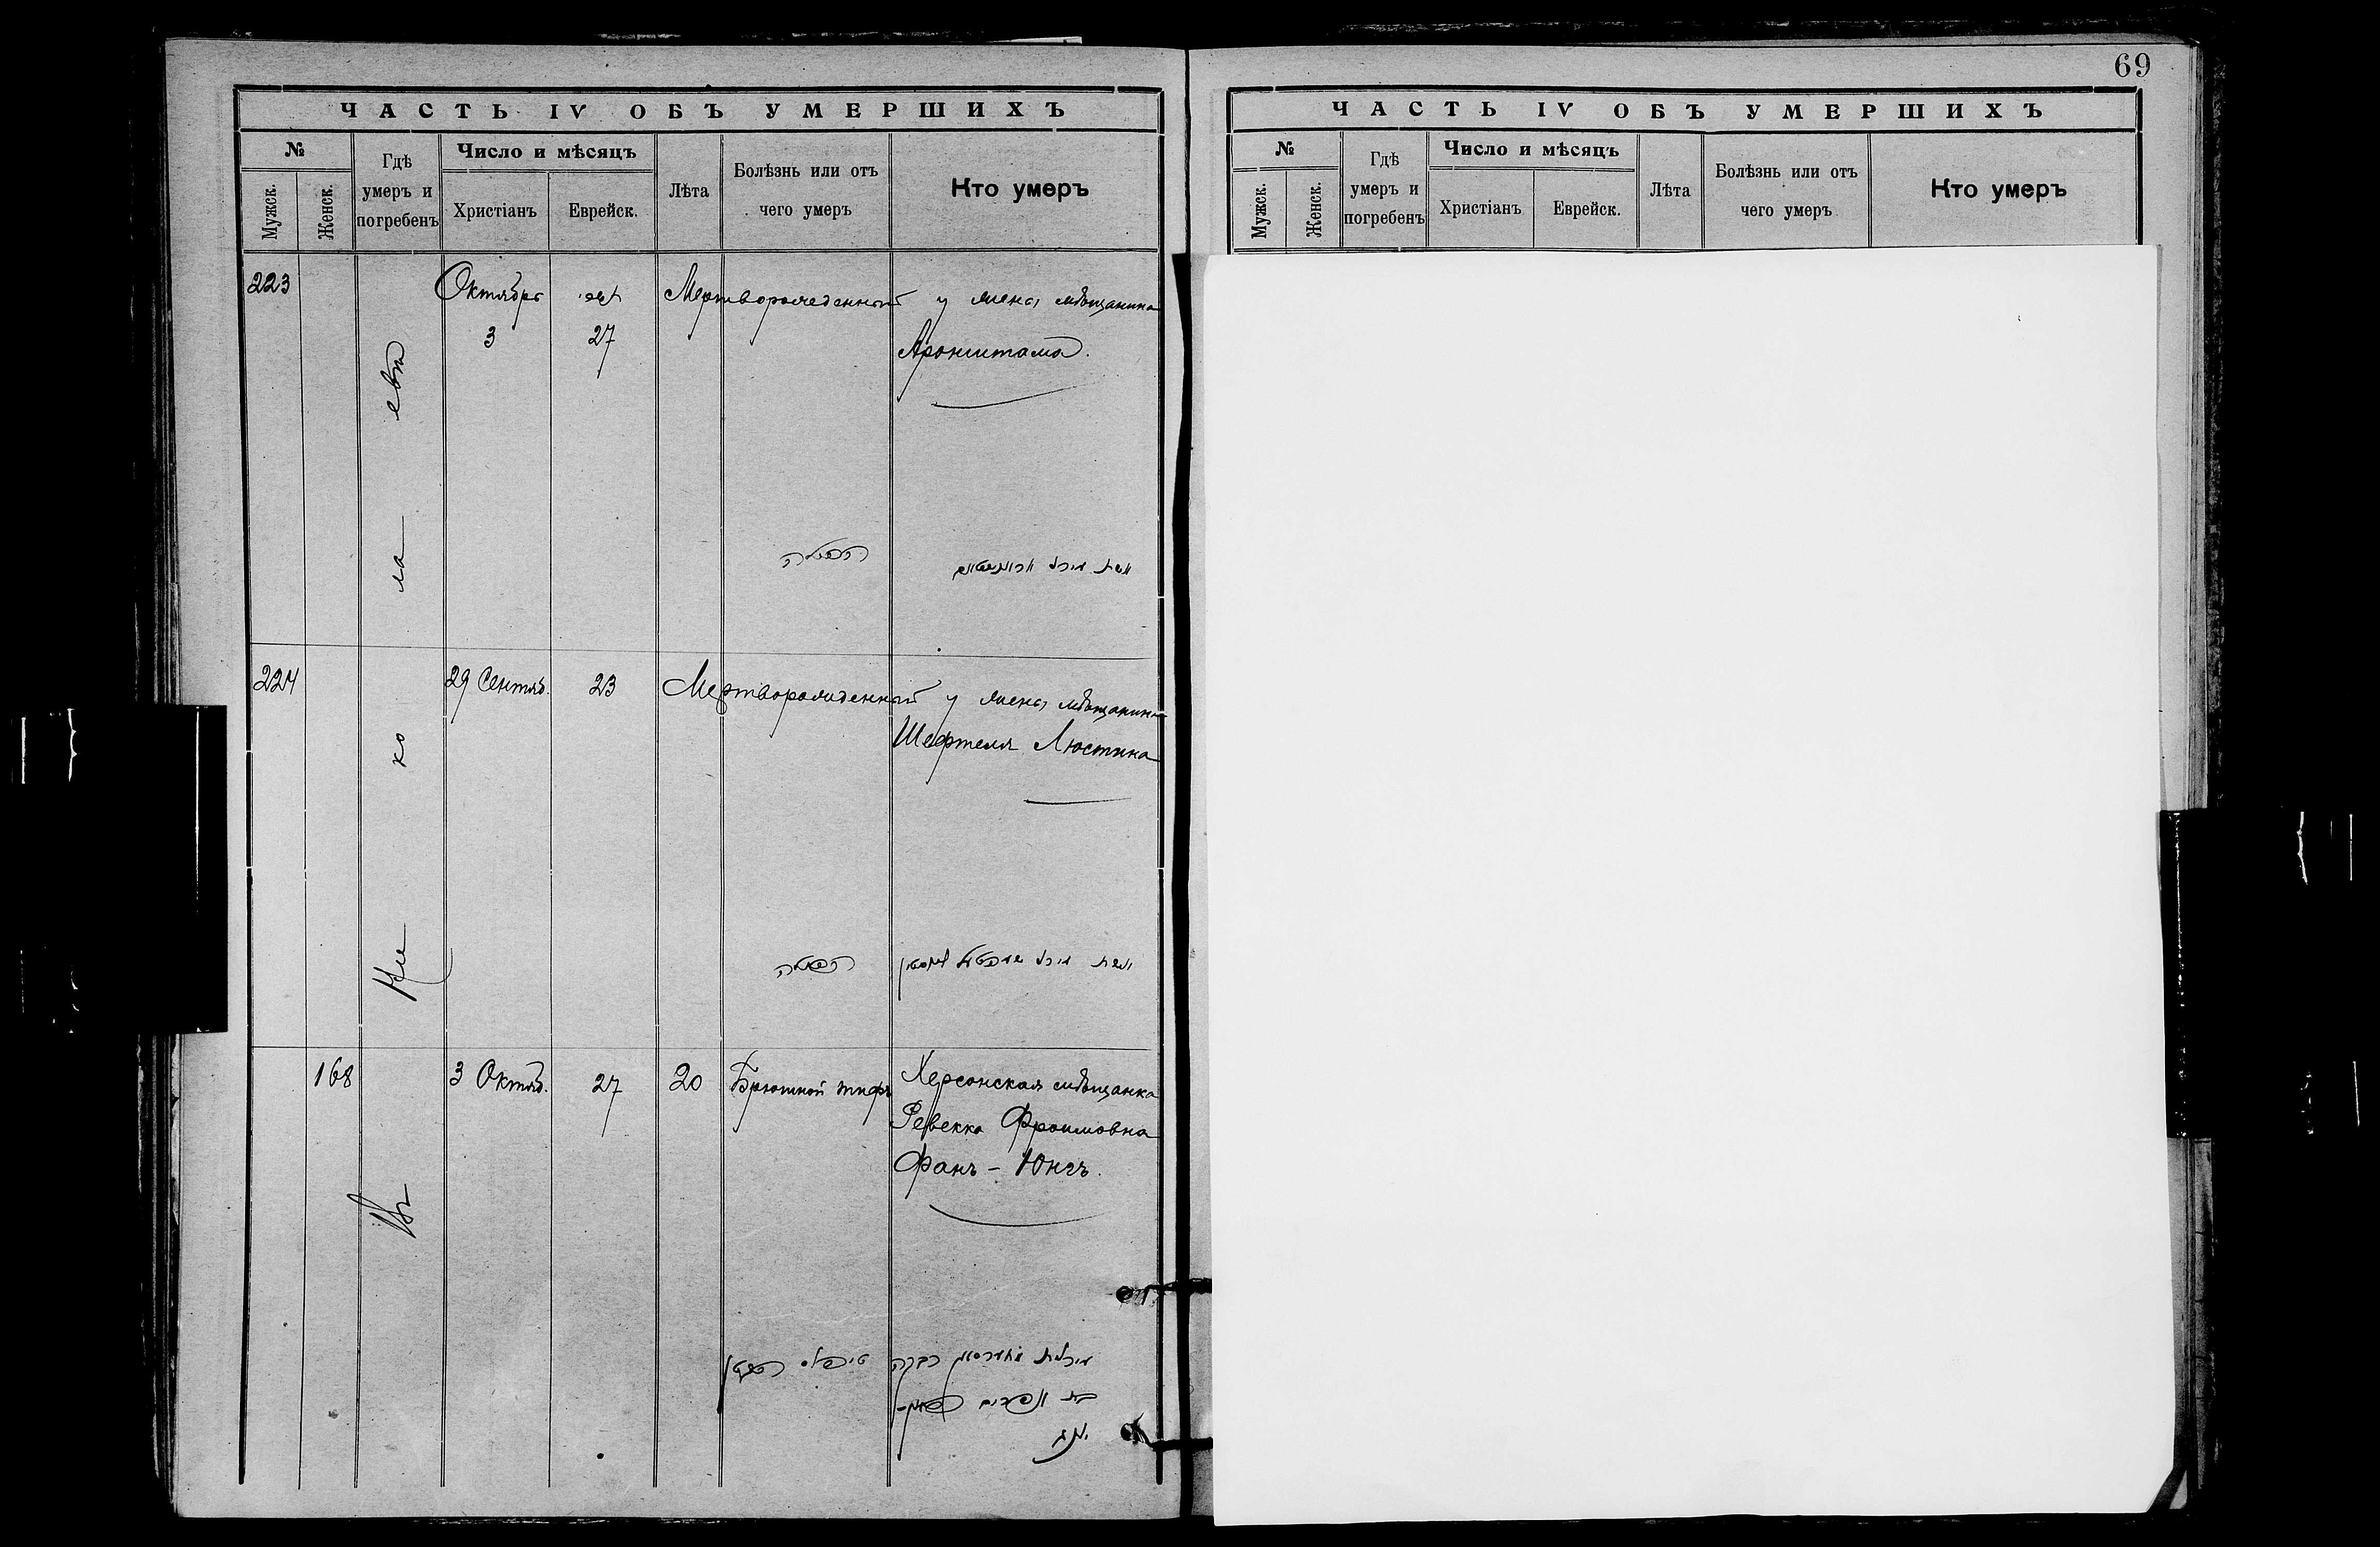 ЧАСТЬ IV ОБЪ УМЕРШИХЪ
№
Мужск.
Женск.
Гдѣ умеръ и погребенъ
Число и мѣсяцъ
Христіанъ
Еврейск.
Лѣта
Болѣзнь или отъ чего умеръ
Кто умеръ
223
Октября
3
27
Мертворожденный у мѣщанина
Аронштама.
224
29 Сентяб.
23
Мертворожденный у мѣщанина
Шефтеля Люстина
168
3 Октяб.
27
20
Брюшной тифъ
Херсонская мѣщанка
Ревекка Фроимовна
Фанъ-Юнгъ.
Въ Николаевѣ
הפלה
הפלה
רבקה
69
ЧАСТЬ IV ОБЪ УМЕРШИХЪ
№
Мужск.
Женск.
Гдѣ умеръ и погребенъ
Число и мѣсяцъ
Христіанъ
Еврейск.
Лѣта
Болѣзнь или отъ чего умеръ
Кто умеръ